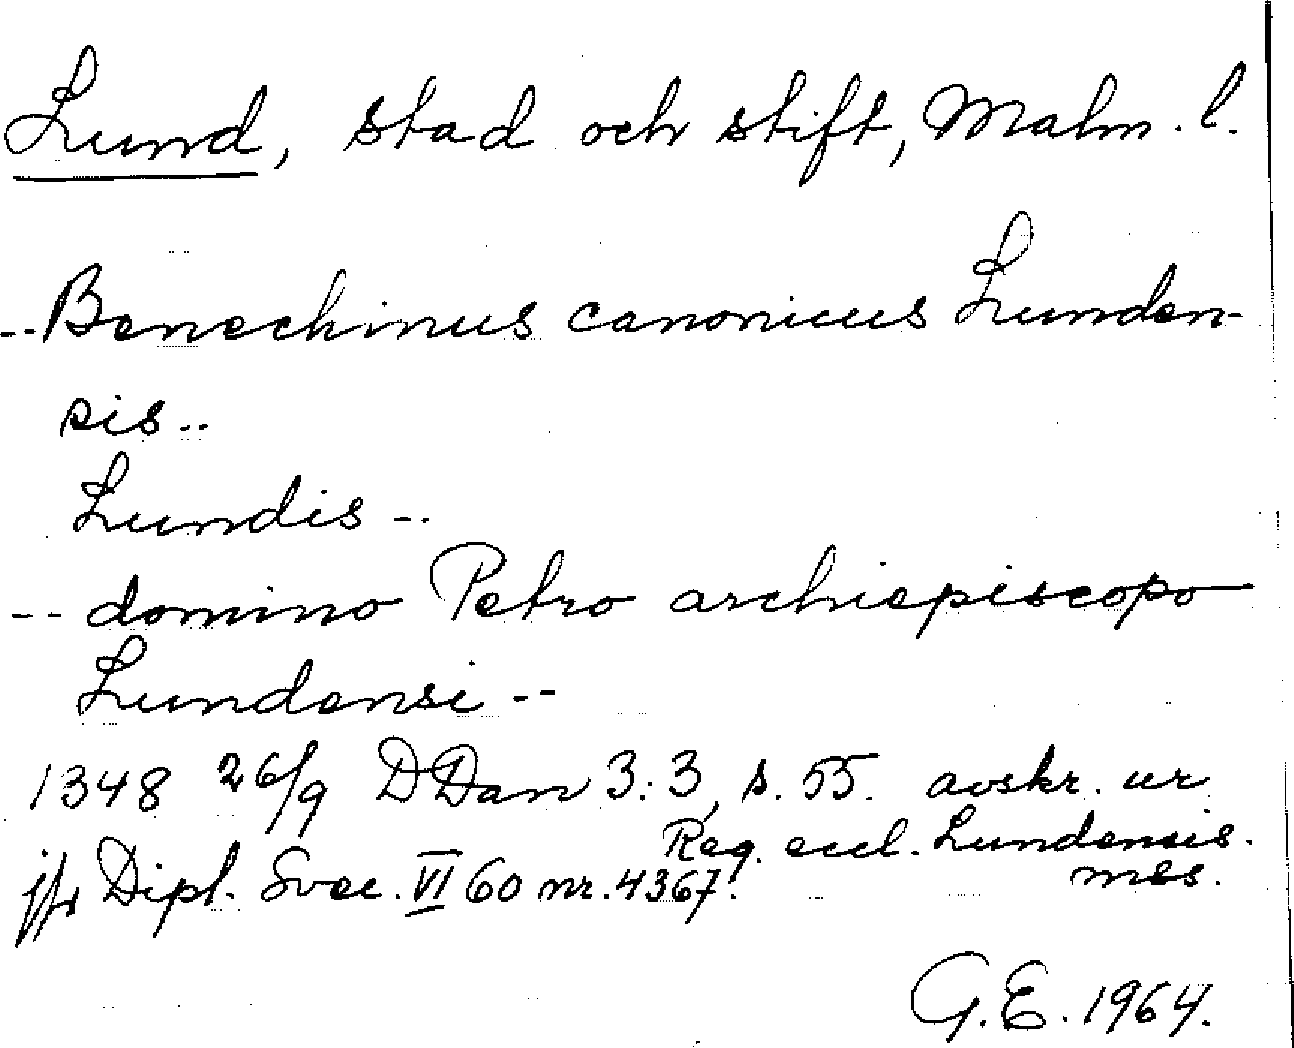 Lund, stad och stift, Malm. l.
-- Benechinus canonicus Lunden-
sis ..
Lundis --
-- domino Petro archiepiscopo
Lundensi --
1348 26/9 DDan 3:3, s. 55. avskr. ur
Reg. eccl. Lundensis.
jfr Dipl. Svec. VI 60 nr. 4367. mbs.
G.E. 1964.